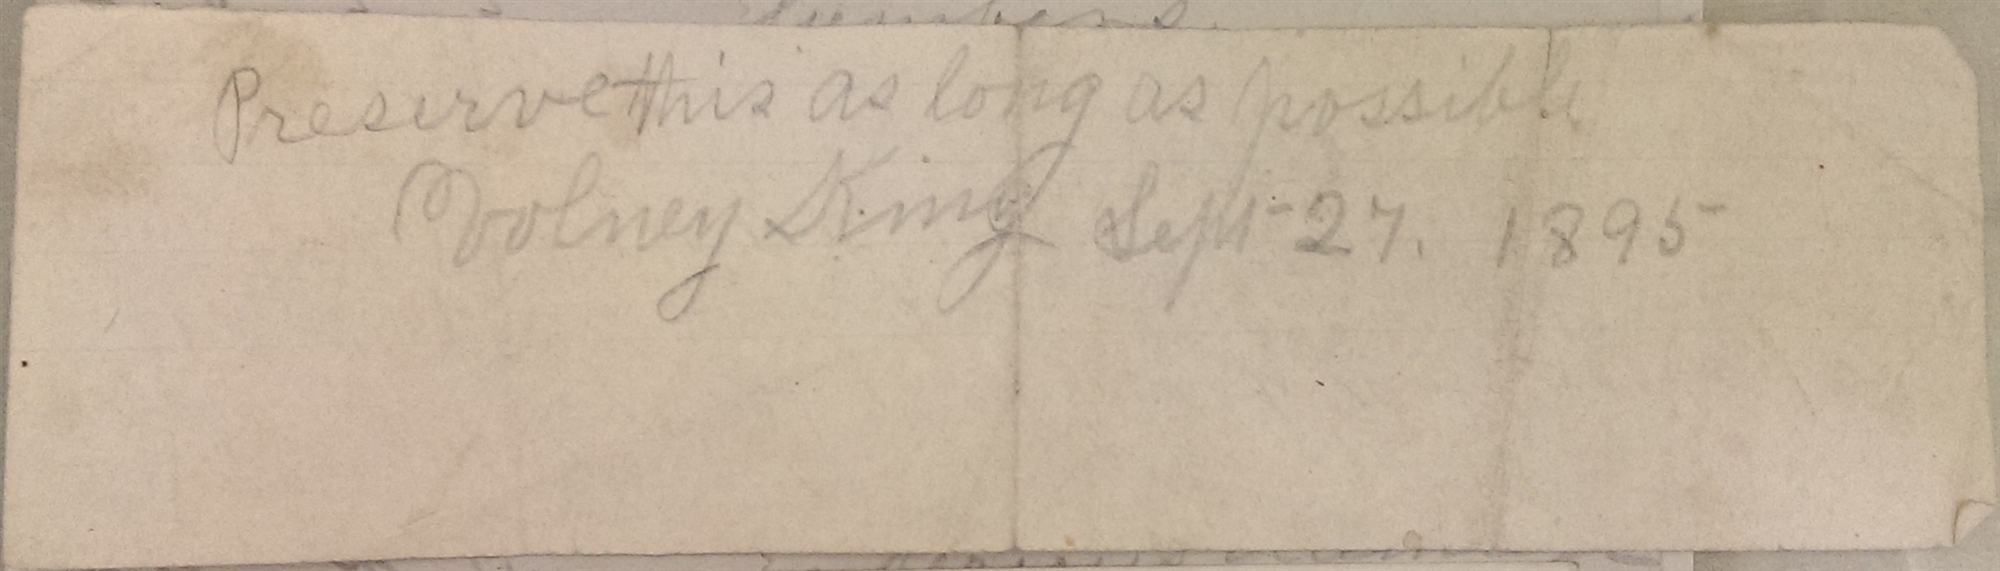 Preserve this as long as possible
Volney King Sept 27. 1895